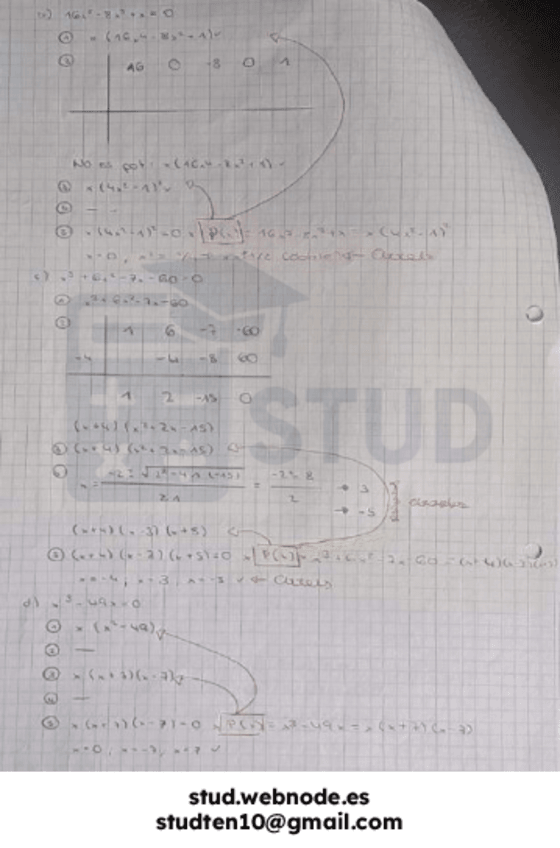 ① x(16x⁴-8x²+1)
② 16 0 -8 0 1
No es pot: x(16x⁴-8x²+1)
③ x(4x²-1)²
④ — -
⑤ x(4x²-1)²=0 P(x)=16x⁵-8x³+x = x(4x²-1)²
x=0,
c) x³+6x²-7x-60=0
① x³+6x²-7x-60
② 1 6 -7 -60
-4 -4 -8 60
1 2 -15 0
(x+4)(x²+2x-15)
③ (x+4)(x²+2x-15)
④ x= -2±√2²-4·1·(-15) / 2·1 = -2±8 / 2 → 3
→ -5
(x+4)(x-3)(x+5)
⑤ (x+4)(x-3)(x+5)=0 P(x)=x³+6x²-7x-60=(x+4)(x-3)(x+5)
x=-4,
d) x³-49x=0
① x(x²-49)
② —
③ x(x+7)(x-7)
④ —
⑤ x(x+7)(x-7)=0 P(x)=x³-49x=x(x+7)(x-7)
x=0, x=-7, x=7
STUD
stud.webnode.es
studten10@gmail.com